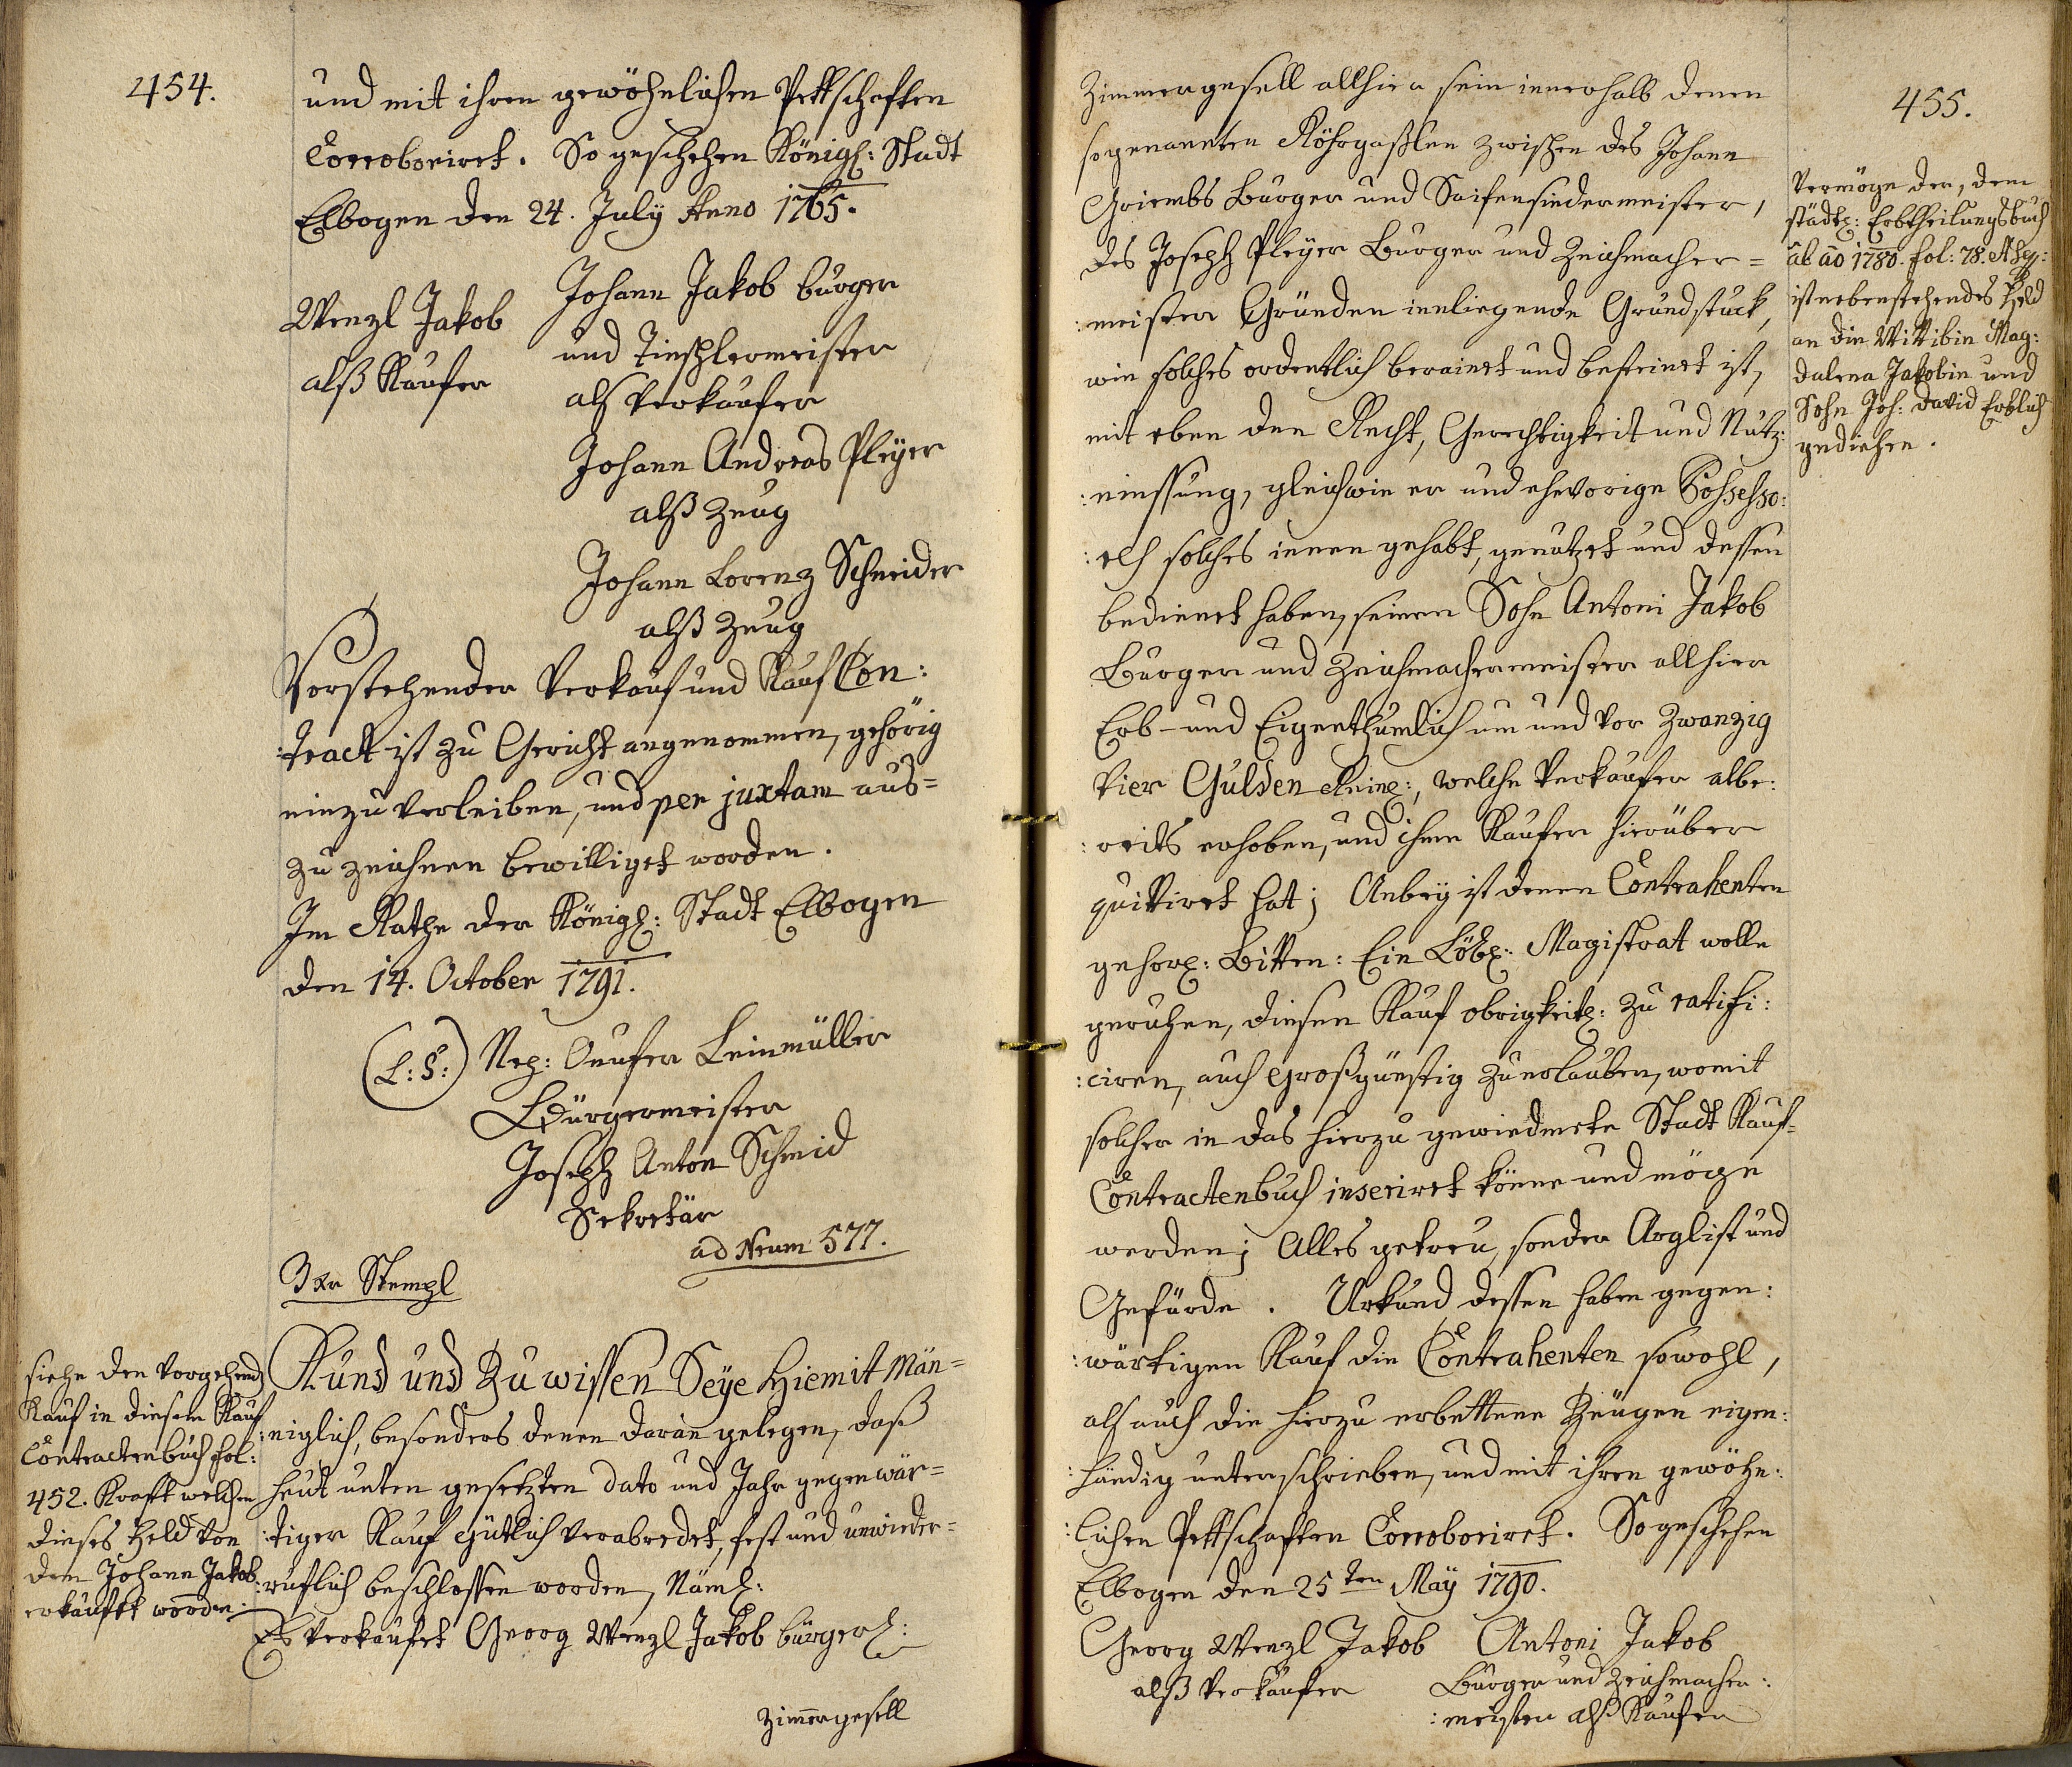 454.
und mit ihren gewöhnlichen Pettschafften
Corroboriret. So geschehen Königl: Stadt
Elbogen den 24. July Anno 1765.
Wenzl Jakob
alß Kaufer
Johann Jakob burger
und Tischlermeister
als Verkaufer
Johann Andreas Pleÿer
alß Zeug
Johann Lorenz Schneider
alß Zeug
Vorstehender Verkauf und Kauf Con:
:tract ist zu Gericht angenommen, gehörig
einzuverleiben, und per juxtam aus=
zu zeichnen bewilliget worden.
Im Rathe der Königl: Stadt Elbogen
den 14. October 1791.
(L:S:) Nep: Onufer Leinmüller
Bürgermeister
Joseph Anton Schmid
Sekretär
ad Num 577.
3 Xr Stempl
siehe den vorgehend
Kauf in diesem Kauf
Contractenbuch fol:
452. Kraft welchen
dieses Feld von
dem Johann Jakob
erkaufft worden.
Kund und Zu wissen Seÿe Hiemit Män=
:niglich, besonders denen daran gelegen, daß
heut unten gesetzten dato und Jahr gegenwär=
:tiger Kauf gütlich verabredet, fest und unwieder=
:ruflich beschlossen worden, Näml:
Es verkaufet Georg Wenzl Jakob bürgerl:
Zimmergesell
455.
Zimmergesell allhier sein innerhalb denen
sogenannten Röhrgaßlen zwischen des Johann
Griembs Burger und Saifensiedermeister,
des Joseph Pleÿer Burger und Zeichmacher=
:meister Gründen innliegende Grundstuck,
wie solches ordentlich berainet und besteinet ist,
mit eben den Recht, Gerechtigkeit und Nutz:
:niessung, gleichwie er und ehevorige Possesso:
:res solches innen gehabt, genutzet und dessen
bedienet haben, seinem Sohn Antoni Jakob
Burger und Zeichmachermeister allhier
Erb- und Eigenthumlich um und vor Zwanzig
Vier Gulden Reinl:, welche Verkaufer albe:
:reits erhoben, und ihme Kaufer hierüber
quittiret hat; Anbeÿ ist denen Contrahenten
gehorl: Bitten: Ein Löbl: Magistrat wolle
geruhen, diesen Kauf obrigkeitl: zu ratifi:
:ciren, auch großgünstig zu erlauben, womit
solcher in das hierzu gewiedmete Stadt Kauf=
Contractenbuch inseriret könne und möge
werden; Alles getreu, sonder Arglist und
Gefärde. Urkund dessen haben gegen:
:wärtigen Kauf die Contrahenten sowohl,
als auch die hierzu erbettene Zeugen eigen:
:händig unterschrieben, und mit ihren gewöhn:
:lichen Pettschafften Corroboriret. So geschehen
Elbogen den 25ten Maÿ 1790.
Georg Wenzl Jakob
alß Verkaufer
Antoni Jakob
Burger und Zeichmacher:
:meister alß Kaufer
Vermöge der, dem
städtl: Erbtheilungsbuch
ab ao 1780. fol: 78.
ist nebenstehendes Feld
an die Wittibin Mag:
dalena Jakobin und
Sohn Joh: David Erblich
gediehen.